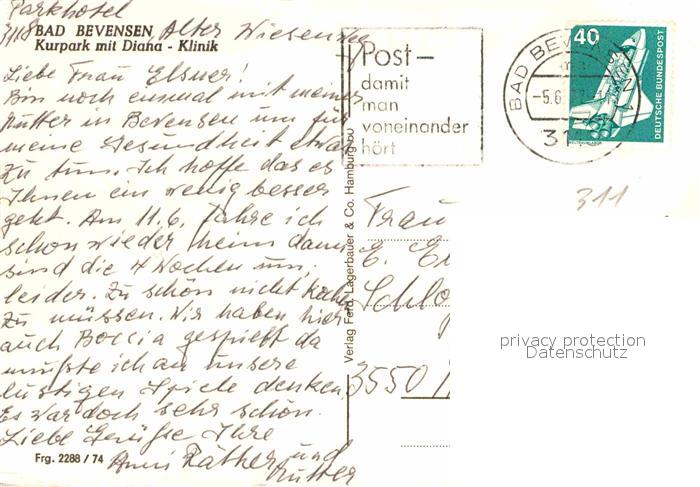 Parkhotel
3118 BAD BEVENSEN Alter Wiesenweg
Kurpark mit Diana - Klinik
Liebe Frau Elsner!
Bin noch einmal mit meiner
Mutter in Bevensen um für
meine Gesundheit etwas
zu tun. Ich hoffe das es
Ihnen ein wenig besser
geht. Am 11.6. fahre ich
schon wieder heim dann
sind die 4 Wochen um,
leider. Zu schön nicht kochen
zu müssen. Wir haben hier
auch Boccia gespielt da
mußte ich an unsere
lustigen Spiele denken.
Es war doch sehr schön.
Liebe Grüße Ihre
Anni Räther und
Mutter
Frg. 2288 / 74
Verlag Ferd. Lagerbauer & Co. Hamburg 50
Post –
damit
man
voneinander
hört
BAD BEVEN
-5.6.
311
40
DEUTSCHE BUNDESPOST
311
Frau
E. El
Schlo
3550 M
privacy protection
Datenschutz